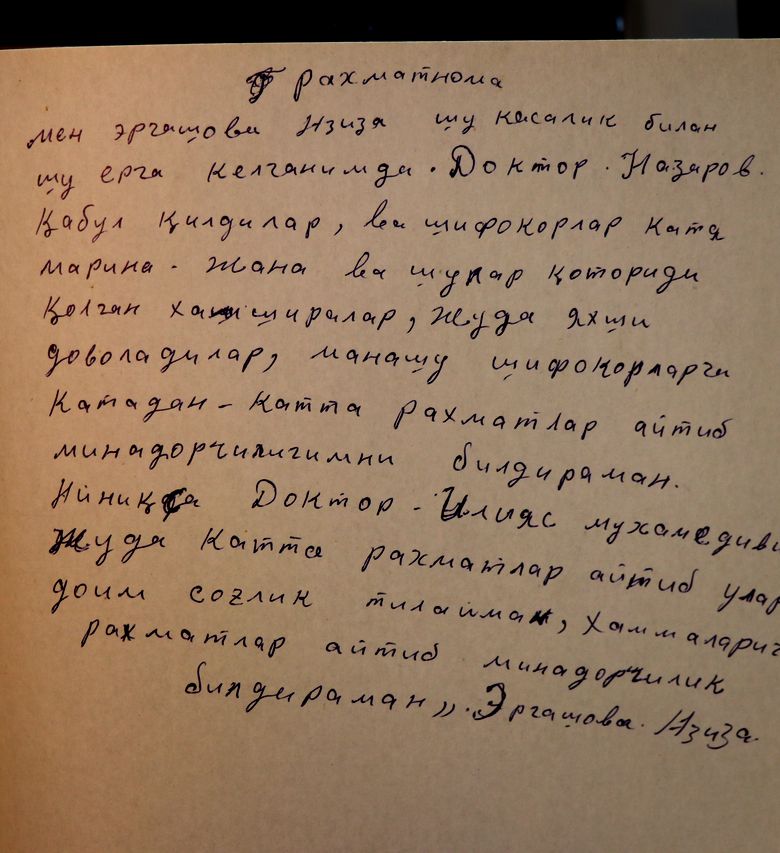 рахматнома
мен эргашова Азиза шу касалик билан
шу ерга келганимда. Доктор. Назаров.
Қабул қилдилар, ва шифокорлар катя
марина. жана ва шулар қоториди
қолган хамширалар, жуда яхши
доволадилар, манашу шифокорларга
Катадан-катта рахматлар айтиб
минадорчилигимни билдираман.
Айниқса Доктор. Илияс
Жуда катта рахматлар айтиб
доим соглик тилайман,
рахматлар айтиб минадорчилик
билдираман,,. Эргашова. Азиза.